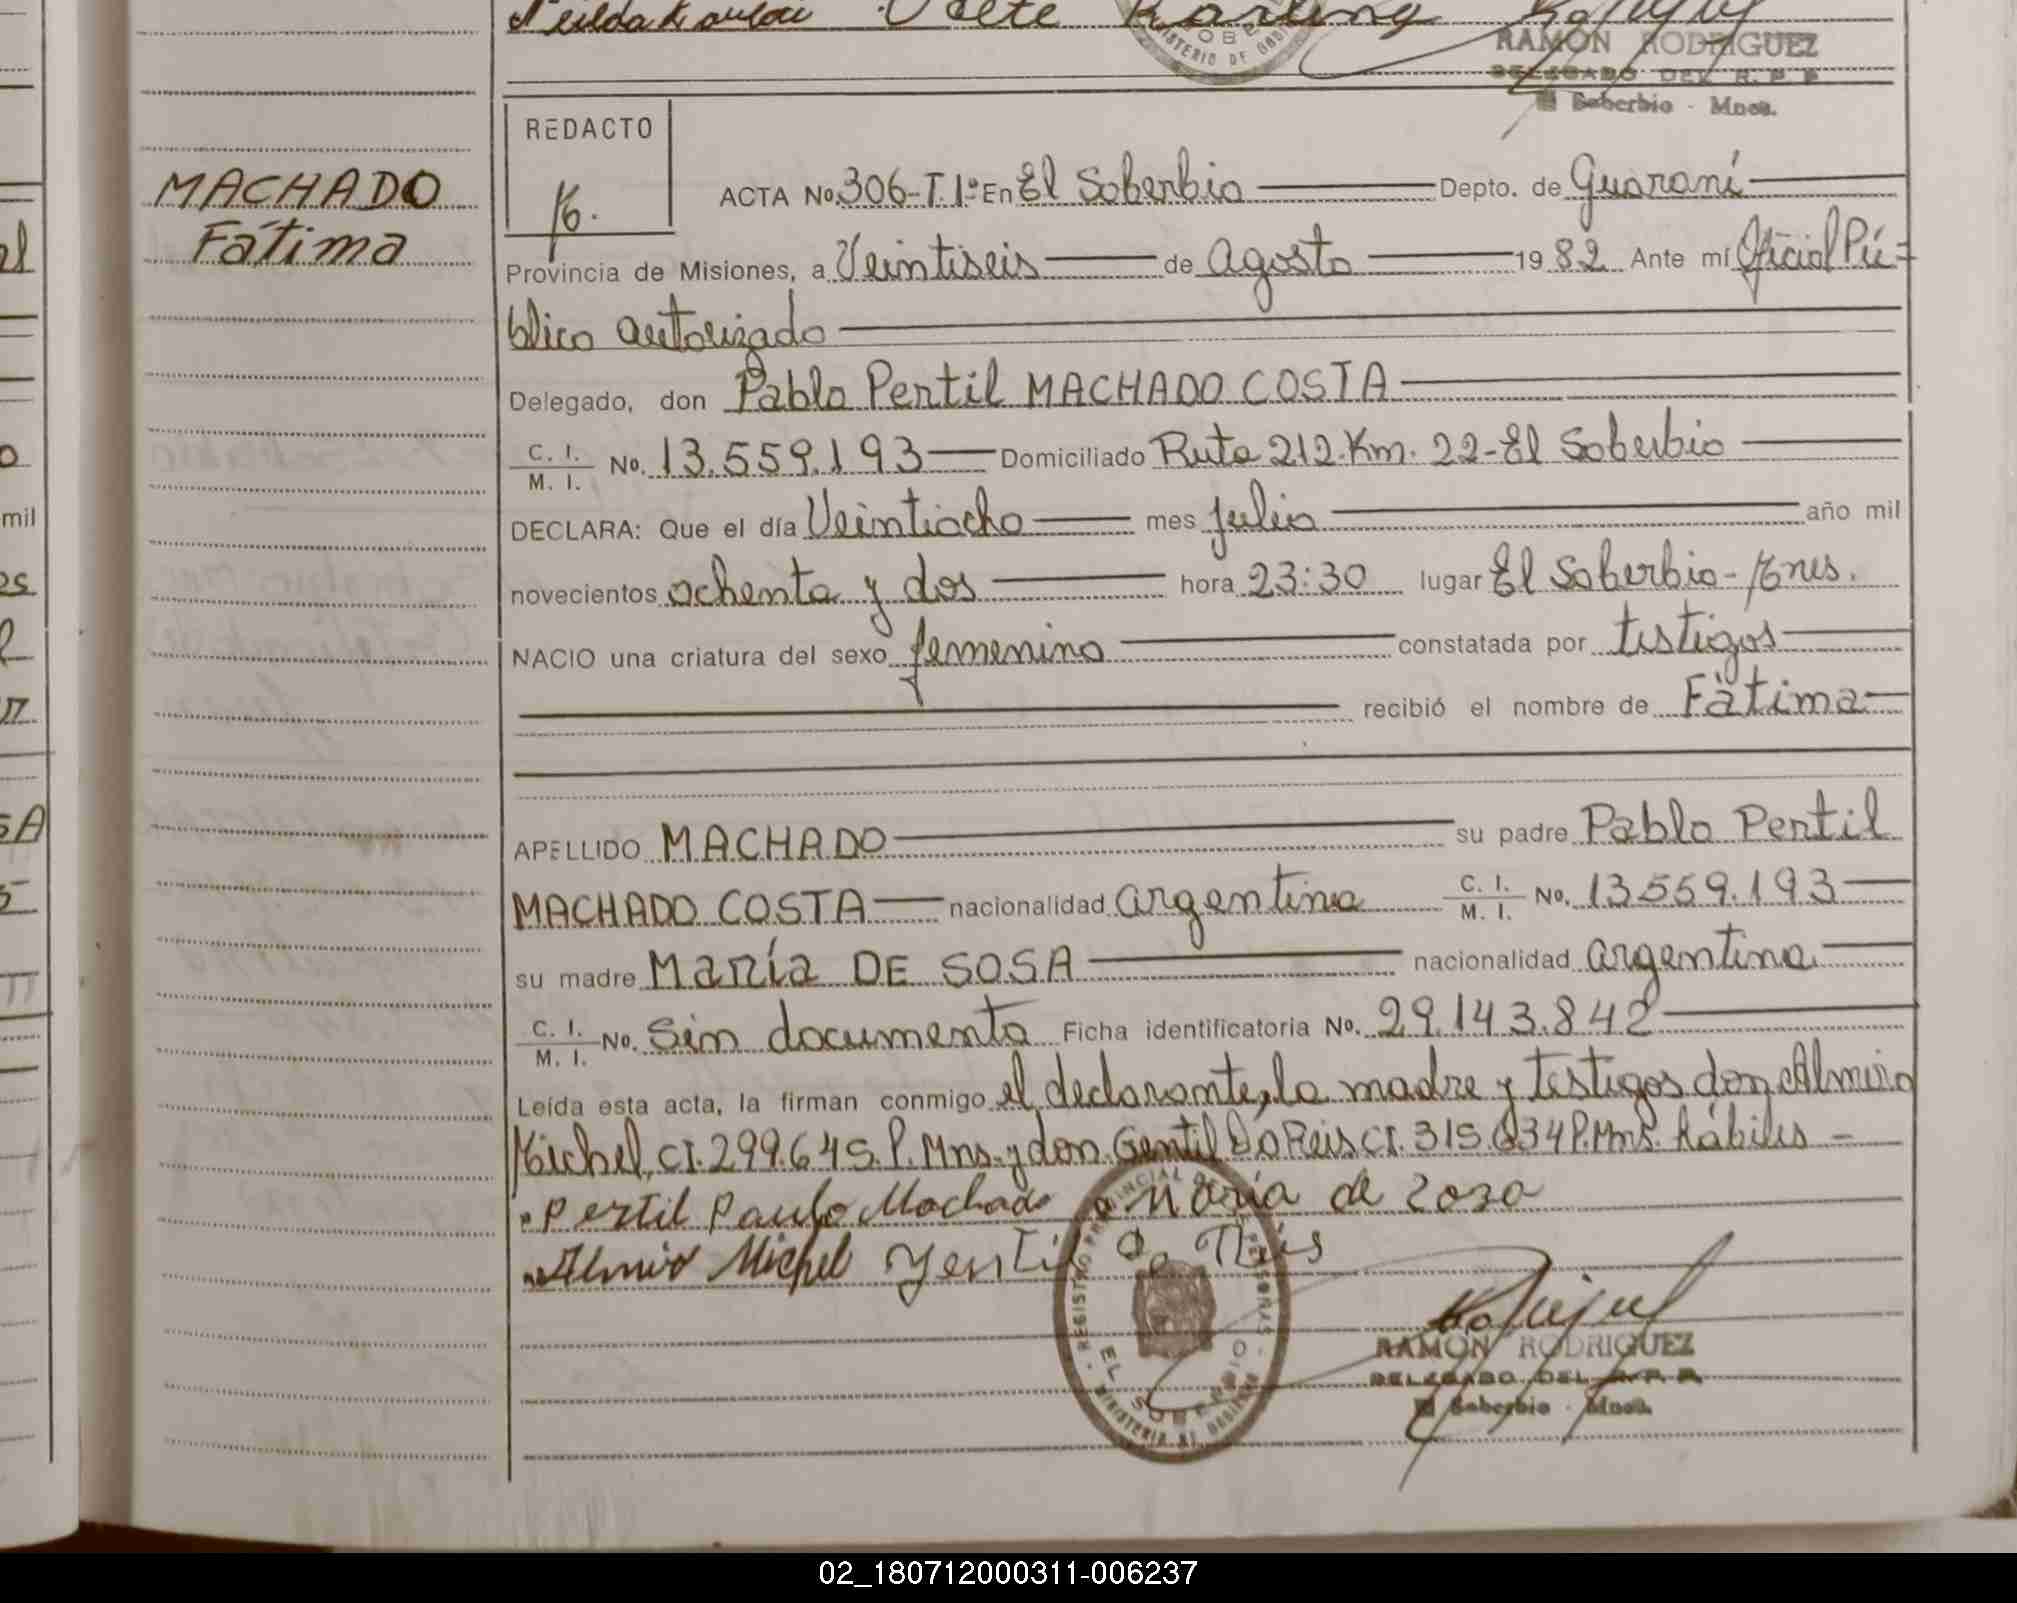 Karling
MINISTERIO DE GOB
RAMON RODRIGUEZ
DELEGADO DEL R. P. P.
El Soberbio - Mnes.
REDACTO
ACTA No. 306-T.1º En El Soberbio Depto. de Guaraní
MACHADO
Fátima
Provincia de Misiones, a Veintiseis de Agosto 1982 Ante mí Oficial Pú-
blico autorizado
Delegado, don Pablo Pertil MACHADO COSTA
C. I.
M. I. No. 13.559.193 Domiciliado Ruta 212.Km. 22-El Soberbio
DECLARA: Que el día Veintiocho mes julio año mil
novecientos ochenta y dos hora 23:30 lugar El Soberbio-Mnes.
NACIO una criatura del sexo femenino constatada por testigos
recibió el nombre de Fátima
APELLIDO MACHADO su padre Pablo Pertil
MACHADO COSTA nacionalidad argentina C. I. M. I. No. 13.559.193
su madre María DE SOSA nacionalidad argentina
C. I.
M. I. No. Sin documento Ficha identificatoria No. 29.143.842
Leída esta acta, la firman conmigo el declarante, la madre y testigos don Almiro
Michel, CI. 299.645. P. Mns. y don Gentil Do Reis CI. 315.634 P. Mns. hábiles -
Pertil Paulo Machado Maria de Zoza
Almiro Michel Gentil
REGISTRO PROVINCIAL DE LAS PERSONAS
EL SOBERBIO
MINISTERIO DE GOBIERNO
RAMON RODRIGUEZ
DELEGADO DEL R. P. P.
El Soberbio - Mnes.
mil
02_180712000311-006237